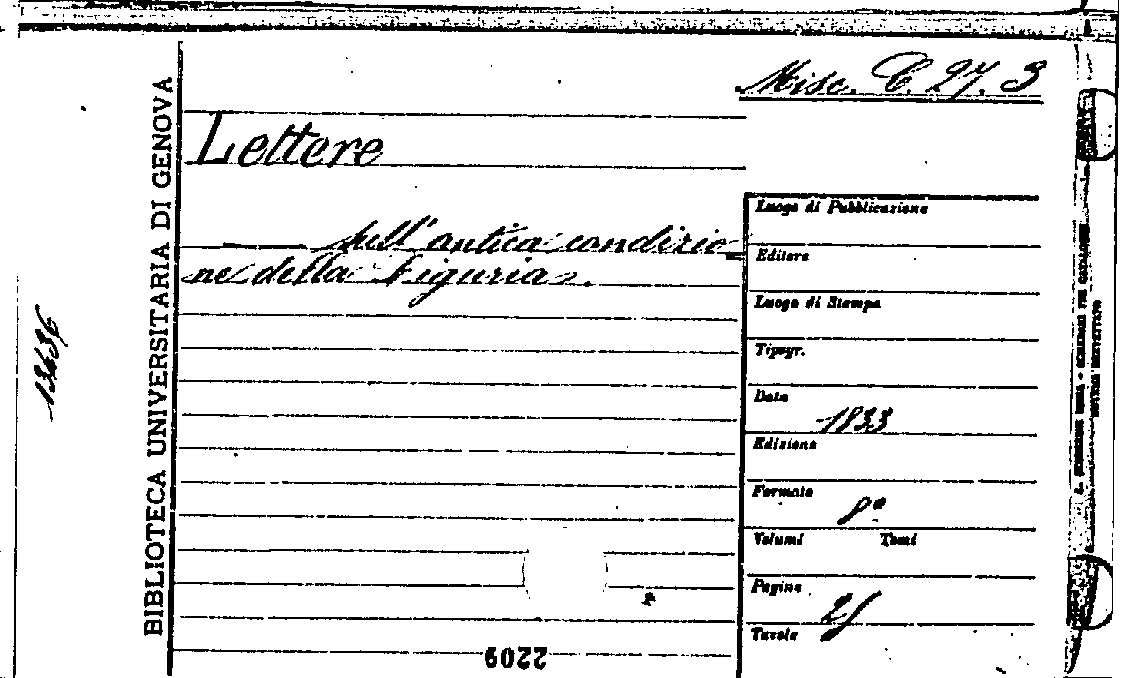 Misc. C. 27. 3
Lettere
sull'antica condizio=
ne della Liguria.
Luogo di Pubblicazione
Editore
Luogo di Stampa
Tipogr.
Data
1833
Edizione
Formato
8º
Volumi Tomi
Pagine
Tavole
BIBLIOTECA UNIVERSITARIA DI GENOVA
2209